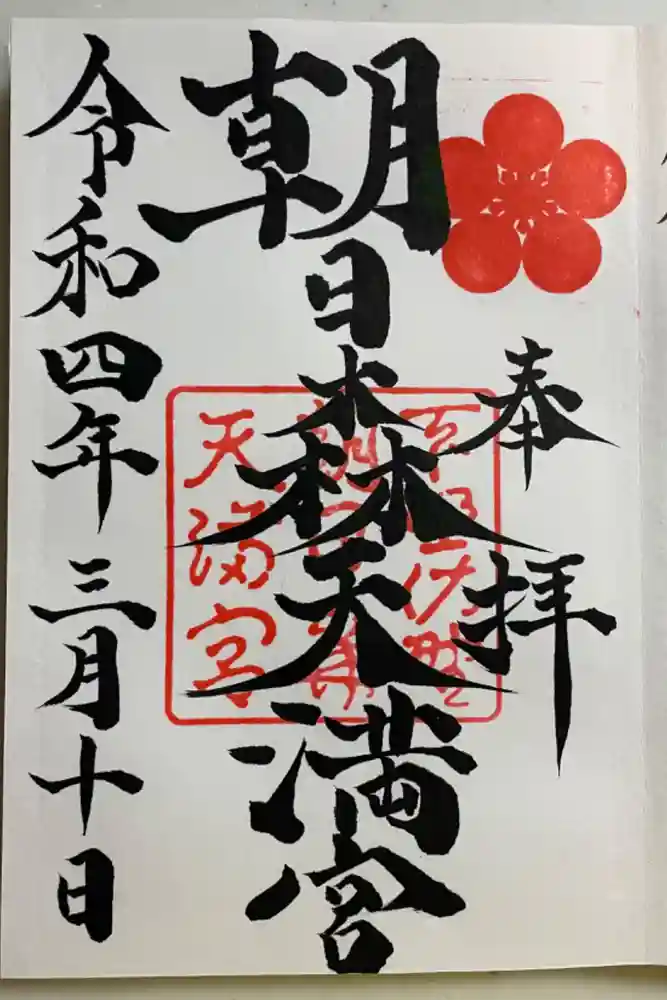 奉拝
朝日森天満宮
令和四年三月十日
天満宮